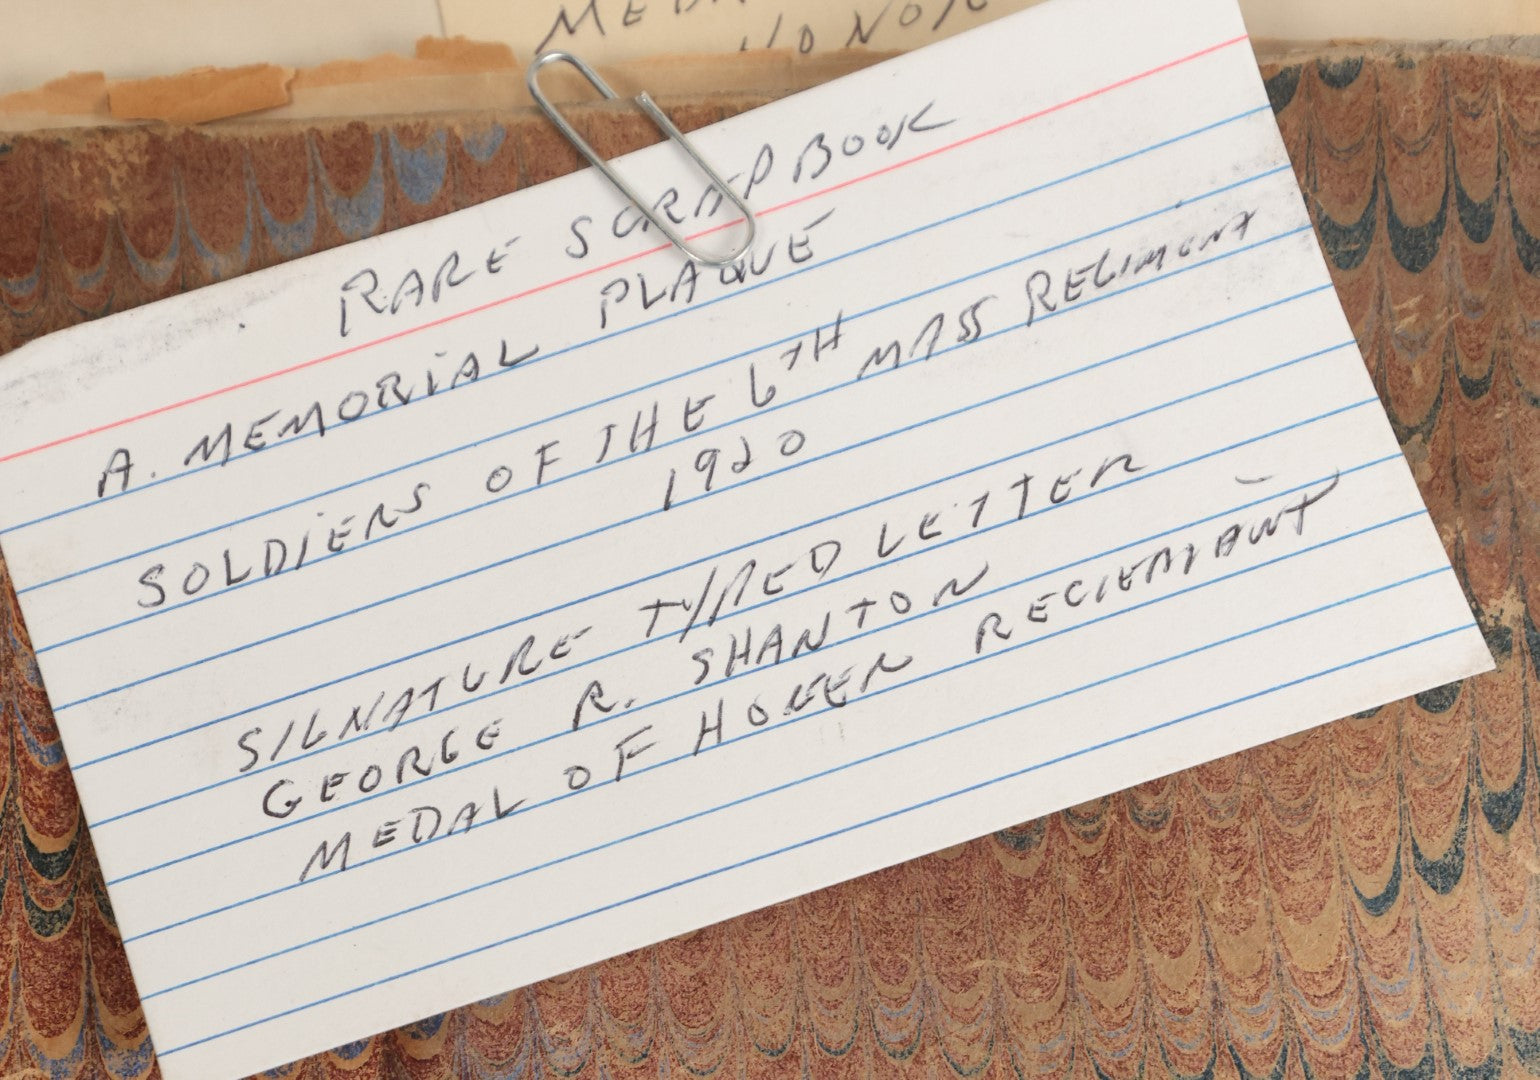 HONOR
RARE SCRAP BOOK
A. MEMORIAL PLAQUE
SOLDIERS OF THE 6TH MASS REGIMENT
1920
SIGNATURE TYPED LETTER
GEORGE R. SHANTON
MEDAL OF HONER RECIEPIANT